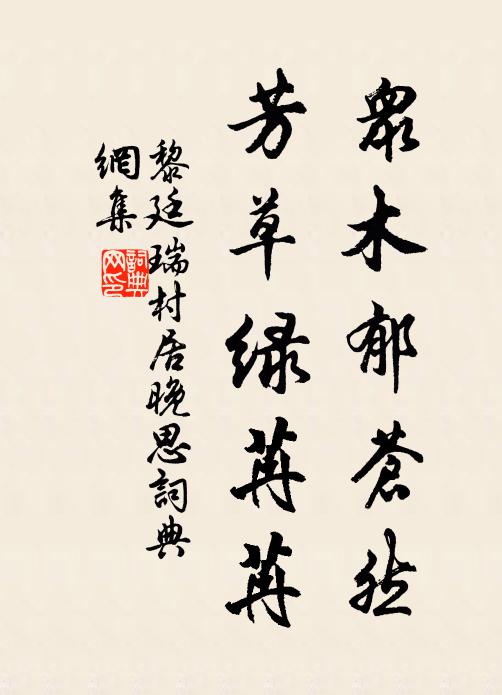 眾木郁蒼然
芳草绿苒苒
黎廷瑞村居晚思詞典
網集
詞典网印